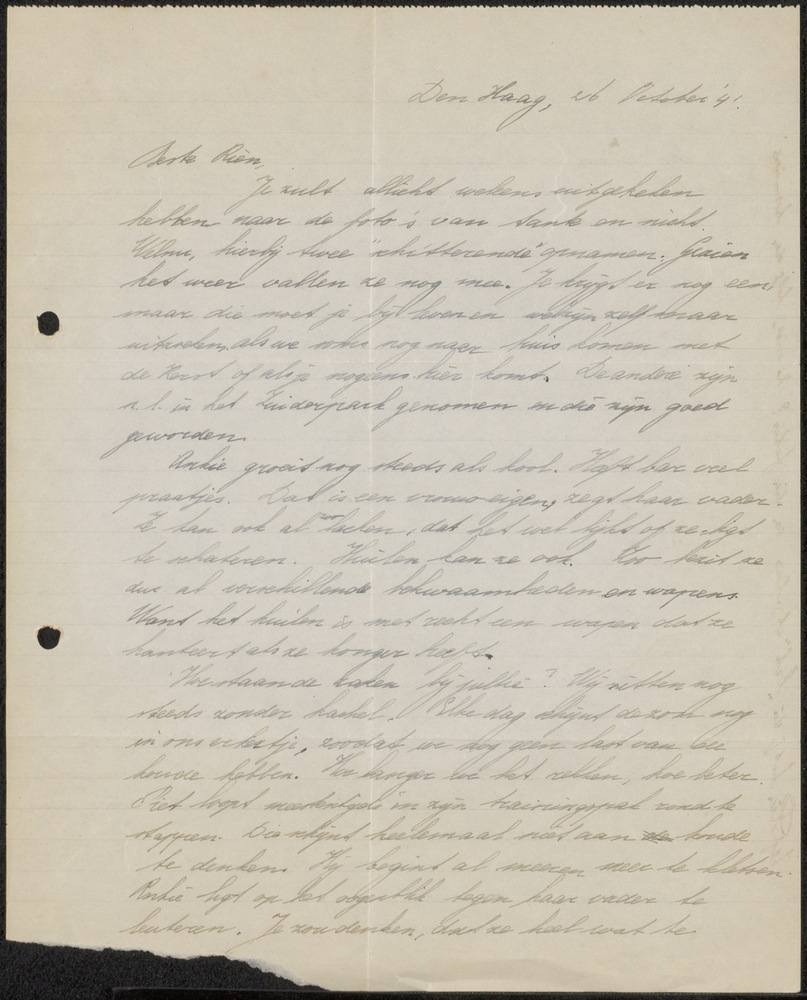 Den Haag, 26 October '41.
Beste Rien,
Je zult allicht wekens uitgekeken
hebben naar de foto's van tante en nicht
Wilma, hierbij twee "schitterende" opnamen. Gezien
het weer vallen ze nog mee. Je krijgt er nog een,
maar die moet je bij zelf maar
uitzoeken, als we soms nog naar huis komen met
de Kerst of als je nog eens hier komt. De andere zijn
n.l. in het Zuiderpark genomen en die zijn goed
geworden.
Ankie groeit nog steeds als kool. Heeft heel veel
praatjes. Dat is een vrouw eigen, zegt haar vader.
Ze kan ook al zoo lachen, dat het wel lijkt of ze ligt
te schateren. Huilen kan ze ook. Zoo bezit ze
dus al verschillende bekwaamheden en wapens.
Want het huilen is met recht een wapen dat ze
hanteert als ze honger heeft.
Hoe staan de zaken bij jullie? Wij zitten nog
steeds zonder kachel. Elke dag schijnt de zon nog
in ons erkertje, zoodat we nog geen last van de
koude hebben. Hoe langer we het rekken, hoe beter.
Piet loopt meestentijds in zijn trainingspak rond te
stappen. Die schijnt heelemaal niet aan de koude
te denken. Hij begint al meer en meer te kletsen.
Ankie ligt op het oogenblik tegen haar vader te
leuteren. Je zou denken, dat ze heel wat te